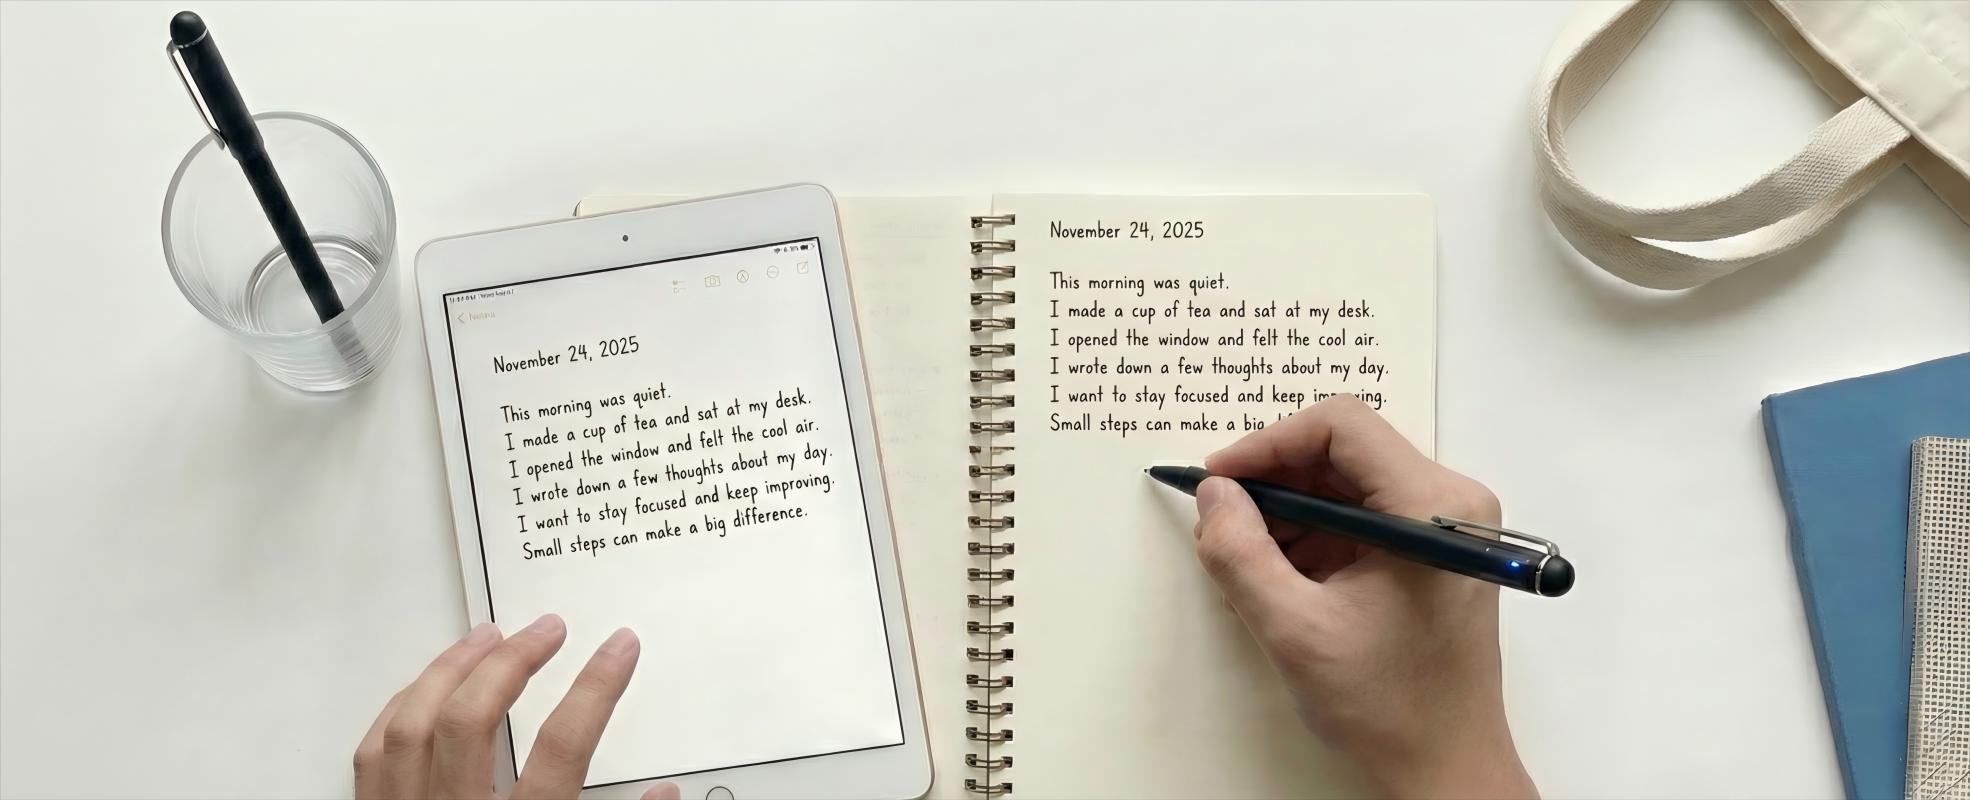 November 24, 2025
This morning was quiet.
I made a cup of tea and sat at my desk.
I opened the window and felt the cool air.
I wrote down a few thoughts about my day.
I want to stay focused and keep improving.
Small steps can make a big difference.
November 24, 2025
This morning was quiet.
I made a cup of tea and sat at my desk.
I opened the window and felt the cool air.
I wrote down a few thoughts about my day.
I want to stay focused and keep
Small steps can make a big